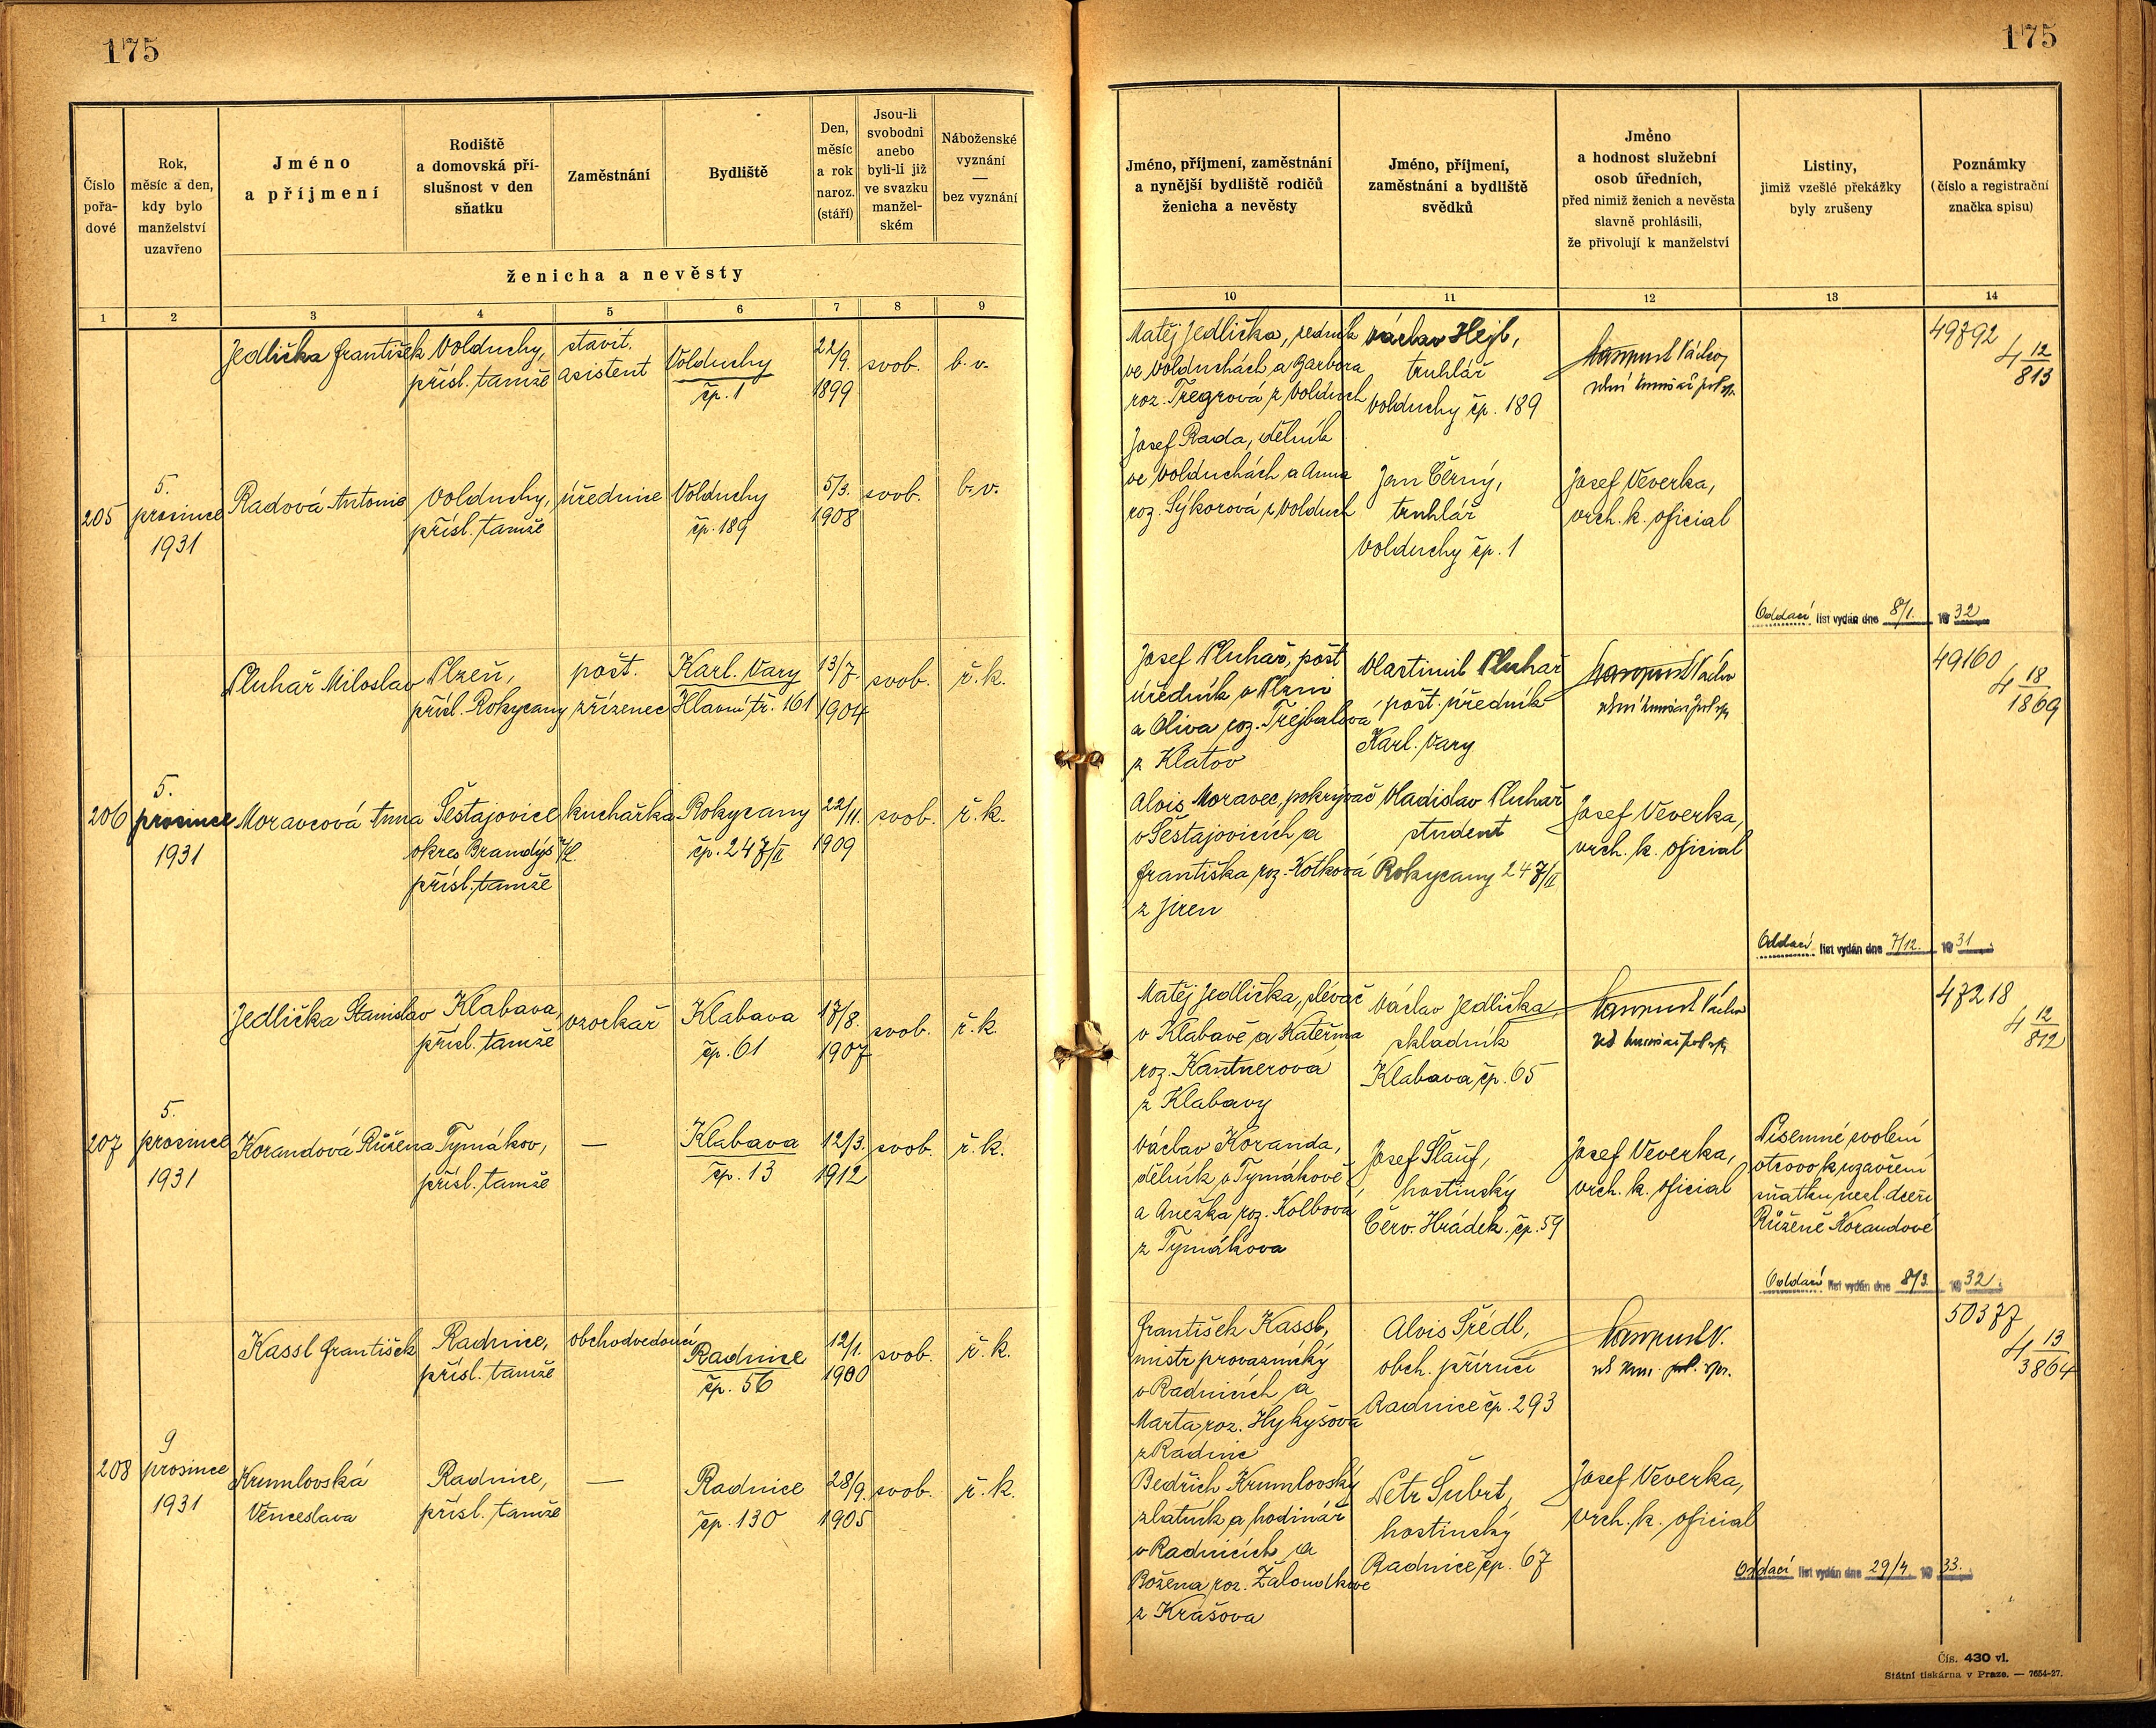 175
175
Číslo
pořa-
dové
Rok,
měsíc a den,
kdy bylo
manželství
uzavřeno
Jméno
a příjmení
Rodiště
a domovská pří-
slušnost v den
sňatku
Zaměstnání
Bydliště
Den,
měsíc
a rok
naroz.
(stáří)
Jsou-li
svobodni
anebo
byli-li již
ve svazku
manžel-
ském
Náboženské
vyznání
—
bez vyznání
ženicha a nevěsty
1 2 3 4 5 6 7 8 9
Jméno, příjmení, zaměstnání
a nynější bydliště rodičů
ženicha a nevěsty
Jméno, příjmení,
zaměstnání a bydliště
svědků
Jméno
a hodnost služební
osob úředních,
před nimiž ženich a nevěsta
slavně prohlásili,
že přivolují k manželství
Listiny,
jimiž vzešlé překážky
byly zrušeny
Poznámky
(číslo a registrační
značka spisu)
10 11 12 13 14
Jedlička František
Volduchy,
přísl. tamže
stavit.
asistent
Volduchy
čp. 1
22/9.
1899
svob.
b. v.
Matěj Jedlička, redník
ve Volduchách a Barbora
roz. Tregrová z Volduch
Václav Hejl,
truhlář
Volduchy čp. 189
49792
4 12/813
205
5.
prosince
1931
Radová Antonie
Volduchy,
přísl. tamže
úřednice
Volduchy
čp. 189
5/3.
1908
svob.
b. v.
Josef Rada, dělník
ve Volduchách a Anna
roz. Sýkorová z Volduch
Jan Černý,
truhlář
Volduchy čp. 1
Josef Veverka,
vrch. k. oficial
Oddací list vydán dne 8/1. 1932
Pluhař Miloslav
Plzeň,
přísl. Rokycany
pošt.
zřízenec
Karl. Vary
Hlavní tř. 161
13/7.
1904
svob.
ř. k.
Josef Pluhař, pošt
úředník v Plzni
a Oliva roz. Trejbalová
z Klatov
Vlastimil Pluhař
pošt. úředník
Karl. Vary
49160
4 18/1869
206
5.
prosince
1931
Moravcová Anna
Šestajovice
okres Brandýs n/L.
přísl. tamže
kuchařka
Rokycany
čp. 247/II
22/11.
1909
svob.
ř. k.
Alois Moravec, pokrývač
v Šestajovicích a
Františka roz. Kotková
z Jiren
Vladislav Pluhař
student
Rokycany 247/II
Josef Veverka,
vrch. k. oficial
Oddací list vydán dne 7/12. 1931
Jedlička Stanislav
Klabava,
přísl. tamže
vzorkař
Klabava
čp. 61
17/8.
1907
svob.
ř. k.
Matěj Jedlička, slévač
v Klabavě a Kateřina
roz. Kantnerová
z Klabavy
Václav Jedlička,
skladník
Klabava čp. 65
47218
4 12/812
207
5.
prosince
1931
Korandová Růžena
Tymákov,
přísl. tamže
—
Klabava
čp. 13
12/3.
1912
svob.
ř. k.
Václav Koranda,
dělník v Tymákově
a Anežka roz. Kolbová
z Tymákova
Josef Šlauf,
hostinský
Červ. Hrádek. čp. 59
Josef Veverka,
vrch. k. oficial
Písemné svolení
otcovo k uzavření
sňatku nezl. dceři
Růženě Korandové
Oddací list vydán dne 8/3 1932
Kassl František
Radnice,
přísl. tamže
obchodvedoucí
Radnice
čp. 56
12/1.
1900
svob.
ř. k.
František Kassl,
mistr provaznický
v Radnicích a
Marta roz. Hykyšová
z Radnic
Alois Šrédl,
obch. příručí
Radnice čp. 293
50377
4 13/3864
208
9
prosince
1931
Krumlovská
Věnceslava
Radnice,
přísl. tamže
—
Radnice
čp. 130
28/9.
1905
svob.
ř. k.
Bedřich Krumlovský
zlatník a hodinář
v Radnicích a
Božena roz.
z Krašova
Petr Šubrt,
hostinský
Radnice čp. 67
Josef Veverka,
vrch. k. oficial
Oddací list vydán dne 29/4 1933.
Čís. 430 vl.
Státní tiskárna v Praze. — 7654-27.